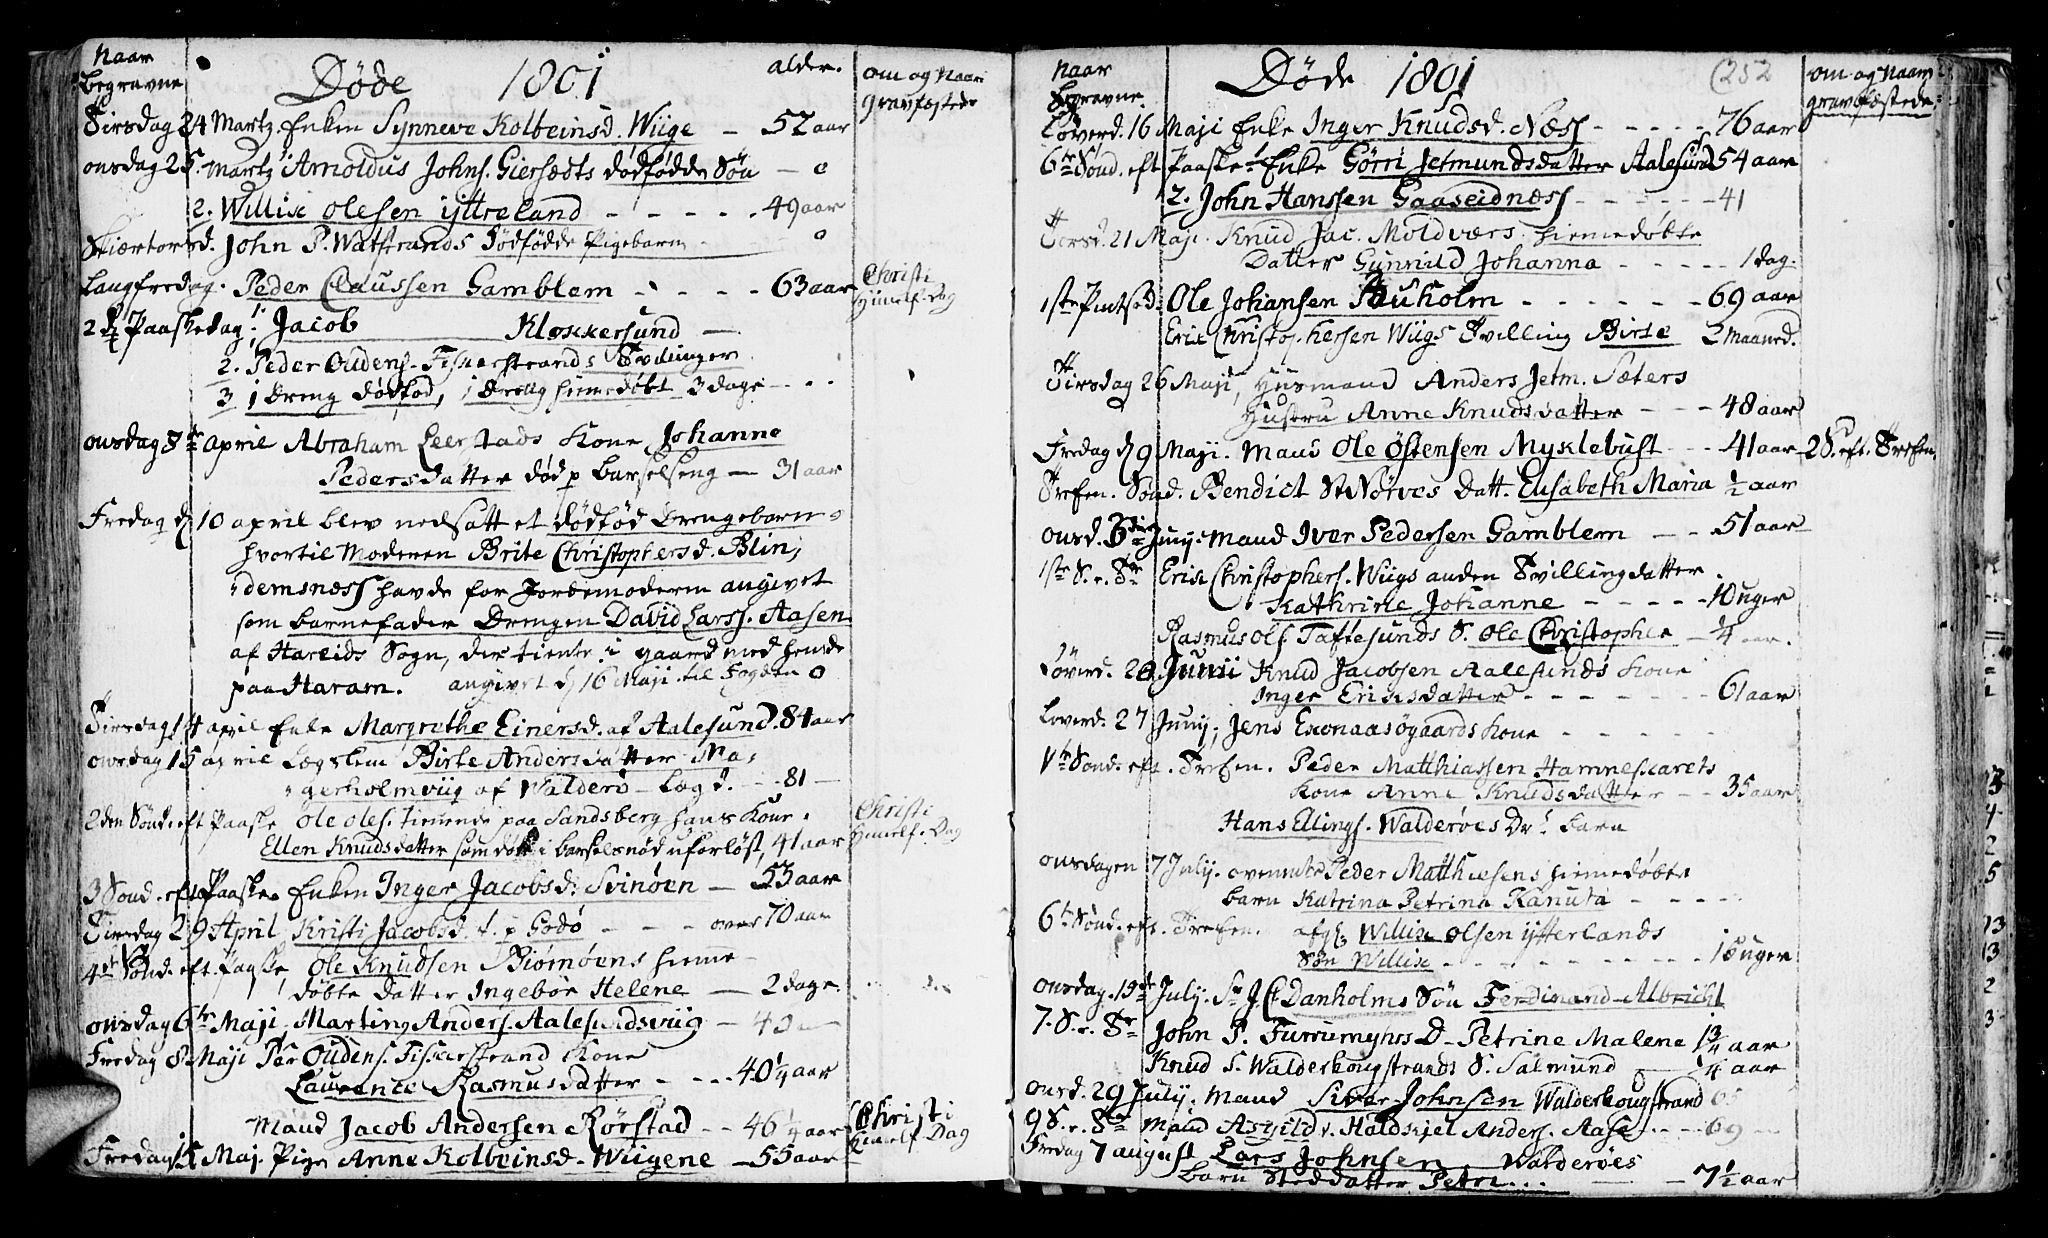 Naar
begravne
Døde 1801
alder.
om og Naar
gravfæstede
Tirsdag 24 Martz. Enken Synneve Kolbeinsd. Wiige - 52 aar
onsdag 25. Martz Arnoldus Johns. Giersædts dødfødde Søn - 0
2. Willix Olesen Ÿttreland - - - - 49 aar
Skiærtorsd. John P. Watstrands dødfødde Pigebarn - 0
Langfredag. Peder Claussen Gamblem - - - - 63 aar
Christi
Himelf. Dag
2 Paaskedag, 1. Jacob Klokkersund -
2. Peder Oudens. Fiskerstrands Tvilinger
3 1 dreng dødfød, 1 dreng hiemedøbt 3 dage
onsdag 8de april Abraham Leerstads Kone Johanne
Pedersdatter død p barselseng - 31 aar
Fredag d 10 april blev nedsatt et dødfød drengebarn
hvortil Moderen Brite Christophersd. Blin,
demsnæss havde for Jordemoderen angivet
som barnefader Drengen David Larss. Aasen
af Hareids Sogn, der tiente i gaard med hende
paa Haram. angivet d 16 Maji til Fogden 0
Tirsdag 14 april Enke Margrethe Einersd. af Aalesund. 84 aar
onsdag 15 april Lægslem Birte Andersdatter Ma,
gerholmviig af Walderø - Lægd. - 81 -
2den Sønd. eft Paaske Ole Oles. tienende paa Sandsberg hans Kone
Ellen Knudsdatter som døde i barselsnød uforløst, 41 aar
Christi
Himelf. Dag
3 Sond. eft Paaske Enken Inger Jacobsd. Svinøen - 53 aar
Tirsdag 29 April Kristi Jacobsd. p Godø - - - over 70 aar
4de Sönd. eft. Paaske, Ole Knudsen Biørnøens hieme
døbte Datter Ingebør Helene - 2 dage.
onsdag 6te Maji. Marting Anders. Aalesundsviig - 43
Fredag 8 Maji Per Oudens. Fiskerstrand Kone
Laurentse Rasmusdatter - - - 40 1/4 aar
Mand Jacob Andersen Rørstad - - 46 1/4 aar
Christi
Himelf Dag
Fredag 15 Maj. Pige Anne Kolbeinsd. Wiigene - 55 aar
Naar
Begravne.
Døde 1801
(252
om og Naar
gravfæstede
Løverd. 16 Maji Enke Inger Knudsd. Næss - - - - - 76 aar
6te Sönd. eft Paaske 1 Enke Gørri Jetmundsdatter Aalesund 54 aar
2. John Hanssen Gaaseidnæss - - - - - 41
Torsd. 21 Maji. Knud Jac. Moldværs hiemedøbte
Datter Gunnild Johanna - - - - - 1 dag.
1ste Pintsed. Ole Johansen Auholm - - - - - - 69 aar
Erix Christophersen Wiigs Tvilling Birte 2 maaned.
Tirsdag 26 Maji, Husmand Anders Jetm. Sæters
Hustru Anne Knudsdatter - - - 48 aar
Fredag d 9 Maji. Mand Ole Østensen Myklebust - - 41 aar
2 S. eft. Trefen.
Trefen. Sönd. Bendict St Nörves Datt. Elisabeth Maria 1/2 aar
onsd. 3die Junij. Mand Iver Pedersen Gamblem - - 51 aar
1ste S. e. Tr Erix Christophers. Wiigs anden Tvillingdatter
Kathrine Johanne - - - - - 10 uger
Rasmus Ols Taftesunds S. Ole Christopher - 1/4 aar.
Løverd. 20 Junii Knud Jacobsen Aalesunds Kone
Inger Ericksdatter - - - - - - 61 aar
Loverd. 27 Junij, Jens Exonaasøgaards Kone - - - - -
4de Sönd. eft. Trefen. Peder Matthiassen Hamneskarets
Kone Anne Knudsdatter - - 35 aar
Hans Ellings. Walderøes Dr. barn
onsdagen 7 Julij. ovenmelte Peder Matthiesens hiemedøbte
barn Katrina Petrina Kanuta - - - -
6te Sønd. eft. Trefen. afg. Willix Olsen Ÿtterlands
Søn Willix - - - - - - - - - uger
onsdag. 15de Julij. Sr J. C. Danholms Søn Ferdinand Albricht
7. S. e. Tr John P. Furrumyhrs D. Petrine Malene 1 3/4 aar
Knud S. Walderhougstrands S. Salmund - 1/4 aar
onsd. 29 Julij. Mand Siver Johnsen Walderhougstrand 65
9 S. e. Tr Mand Asgild v. Haldskjel Anders. Aase - - - 69
Fredag 7 august Lars Johnsen Walderøes
barn Steddatter Petri... - 7 1/2 aar